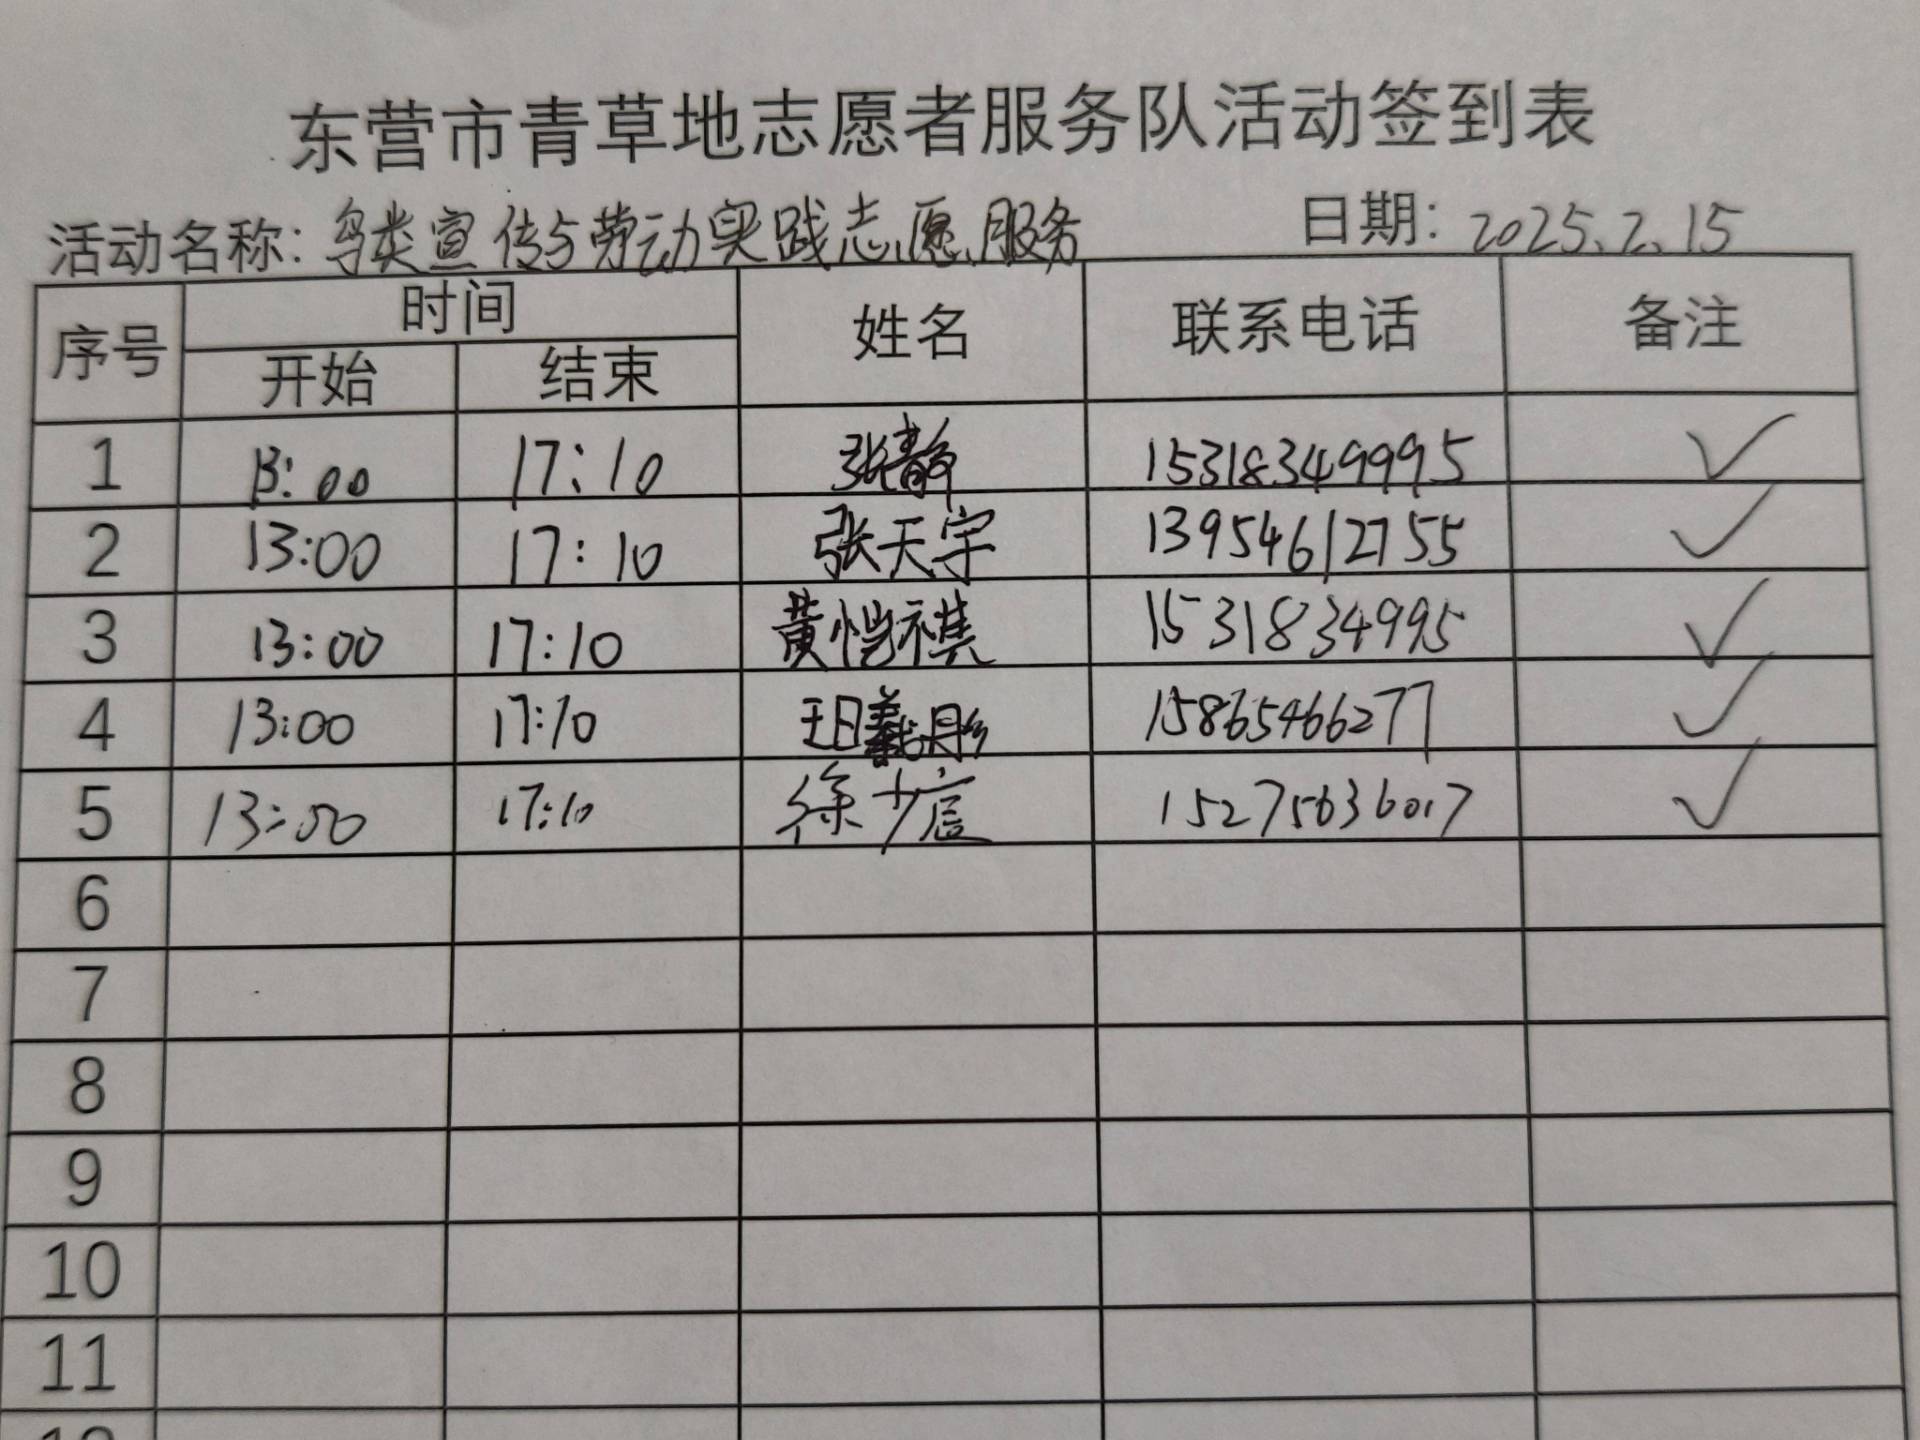 东营市青草地志愿者服务队活动签到表
活动名称: 鸟类宣传与劳动实践志愿服务 日期: 2025.2.15
序号 时间 姓名 联系电话 备注
开始 结束
1 13:00 17:10 张静 15318349995 ✓
2 13:00 17:10 张天宇 13954612755 ✓
3 13:00 17:10 黄恺祺 15318834995 ✓
4 13:00 17:10 王曦彤 15865466277 ✓
5 13:00 17:10 徐少宸 15275636017 ✓
6
7
8
9
10
11